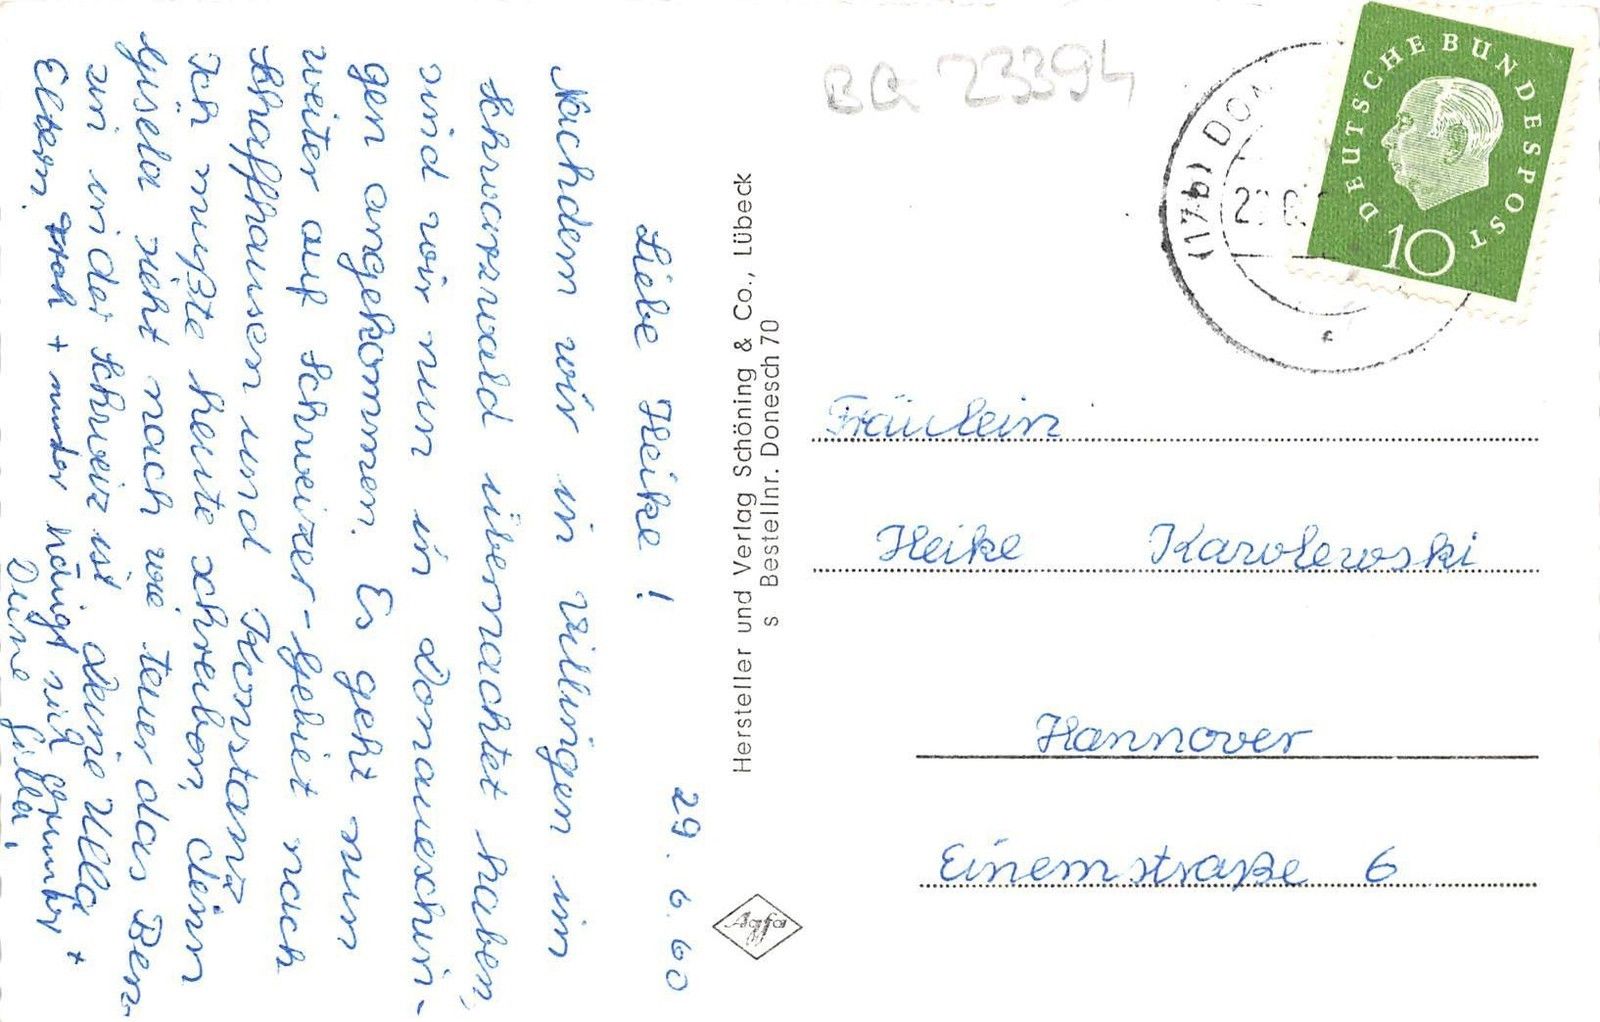 29. 6. 60
Liebe Heike!
Nachdem wir in Villingen im
Schwarzwald übernachtet haben,
sind wir nun in Donaueschin-
gen angekommen. Es geht nun
weiter auf Schweizer-Gebiet nach
Schaffhausen und Konstanz
Ich mußte heute schreiben, denn
Gisela sieht nach wie teuer das Ben-
zin in der Schweiz ist. Deine Ulla +
Eltern. + hängt sich +
Deine Gilla.
Hersteller und Verlag Schöning & Co., Lübeck
s Bestellnr. Donesch 70
Agfa
BQ 23394
(17b) DON
DEUTSCHE BUNDESPOST
10
Fräulein
Heike Karolewski
Hannover
Einemstraße 6